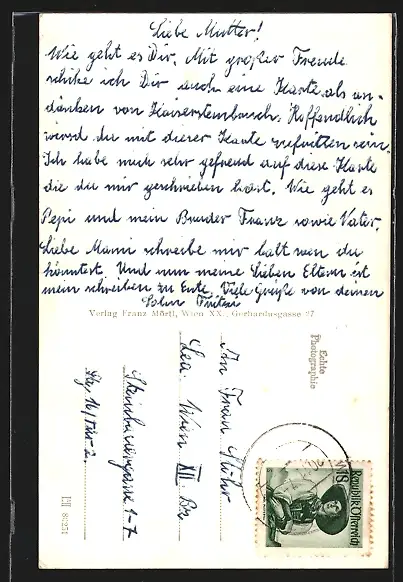 Liebe Mutter!
Wie geht es Dir. Mit großer Freude
schike ich Dir auch eine Karte als an-
dänken von Kaisersteinbruch. Hoffendlich
wirst du mit dieser Karte zufritten sein.
Ich habe mich sehr gefreud auf diese Karte
die du mir geschrieben hast. Wie geht es
Pepi und mein Bruder Franz sowie Vater.
Liebe Mami schreibe mir balt wen du
könntest. Und nun meine Lieben Eltern ist
mein schreiben zu Ente. Viele Grüße von deinen
Sohn Fritzi
Verlag Franz Mörtl, Wien XX., Gerhardusgasse 27
Echte
Photographie
An Frau
Wien XII. Bz
Steinbauergasse 1-7
Republik Österreich
1S